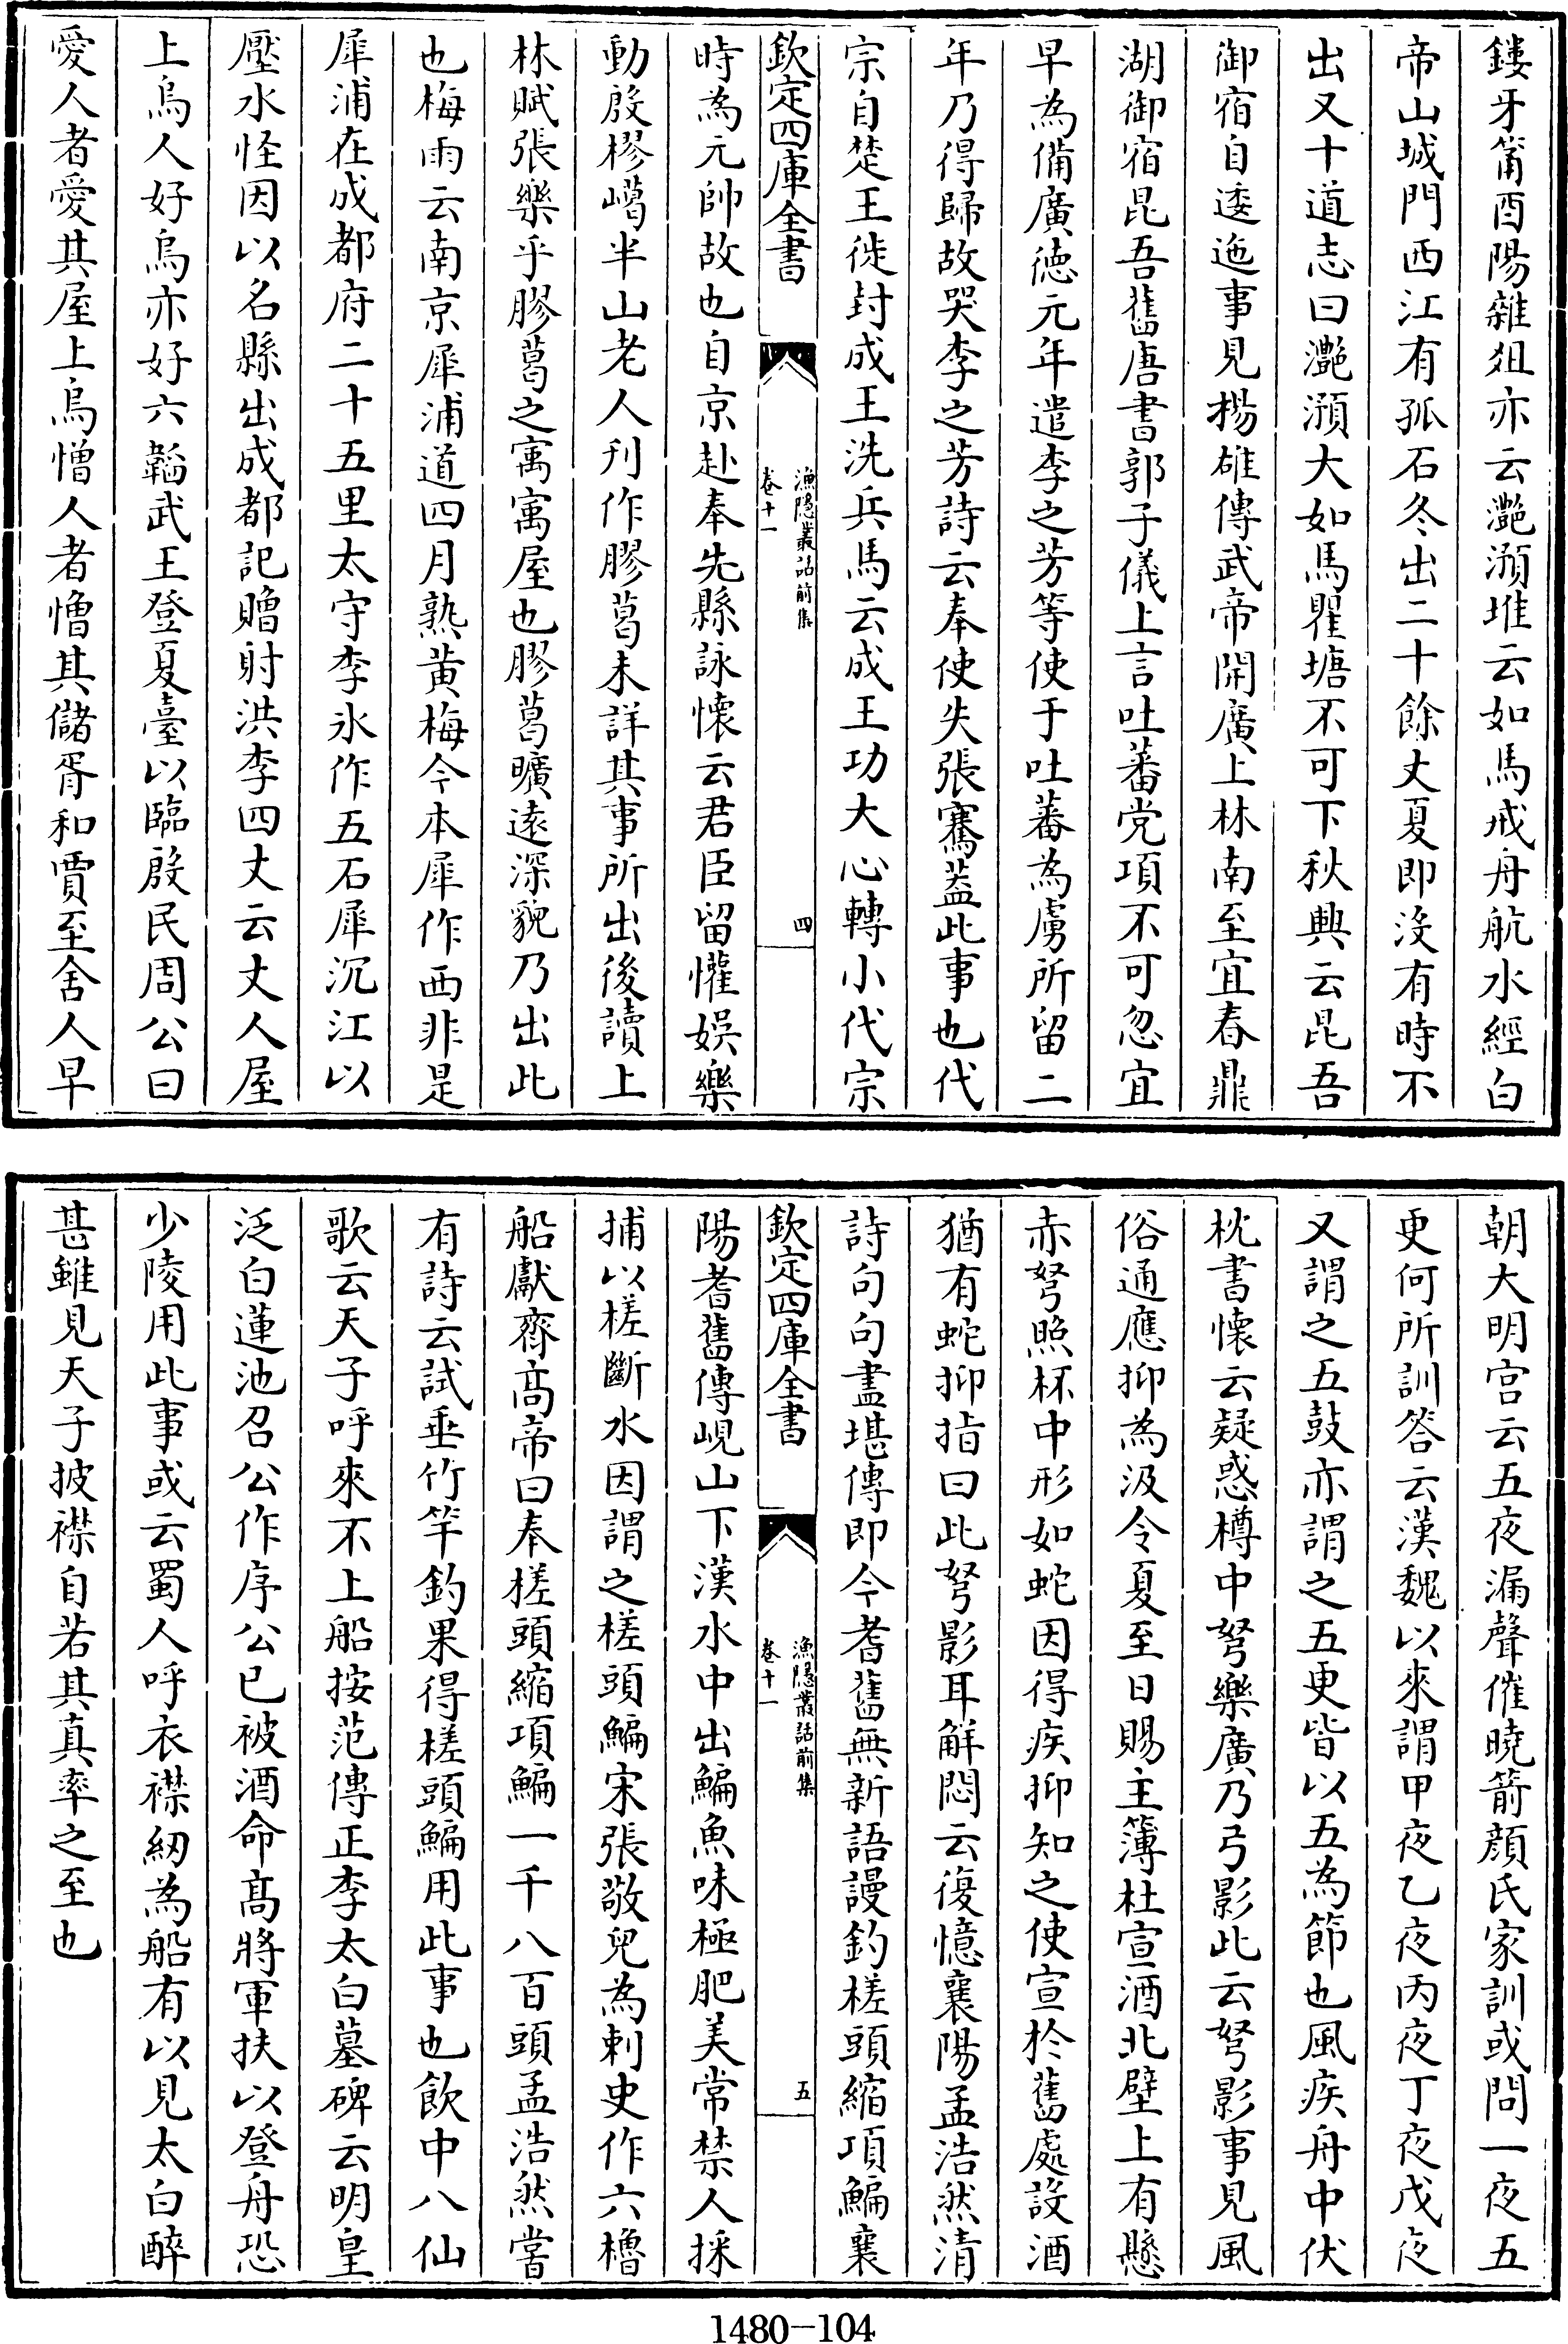 鏤牙筩酉陽雜俎亦云灔澦堆云如馬戒舟航水經白
帝山城門西江有孤石冬出二十餘丈夏即沒有時不
出又十道志曰灔澦大如馬瞿塘不可下秋興云昆吾
御宿自逶迤事見揚雄傳武帝開廣上林南至宜春鼎
湖御宿昆吾舊唐書郭子儀上言吐蕃党項不可忽宜
早為備廣徳元年遣李之芳等使于吐蕃為虜所留二
年乃得歸故哭李之芳詩云奉使失張騫葢此事也代
宗自楚王徙封成王洗兵馬云成王功大心轉小代宗
欽定四庫全書
漁隱叢話前集
卷十一
四
時為元帥故也自京赴奉先縣詠懷云君臣留懽娛樂
動殷樛嶱半山老人刋作膠葛未詳其事所出後讀上
林賦張樂乎膠葛之㝢㝢屋也膠葛曠逺深貌乃出此
也梅雨云南京犀浦道四月熟黄梅今本犀作西非是
犀浦在成都府二十五里太守李氷作五石犀沉江以
壓水怪因以名縣出成都記贈射洪李四丈云丈人屋
上烏人好烏亦好六韜武王登夏臺以臨殷民周公曰
愛人者愛其屋上烏憎人者憎其儲胥和賈至舍人早
朝大明宫云五夜漏聲催曉箭顔氏家訓或問一夜五
更何所訓答云漢魏以來謂甲夜乙夜丙夜丁夜戊夜
又謂之五鼓亦謂之五更皆以五為節也風疾舟中伏
枕書懷云疑惑樽中弩樂廣乃弓影此云弩影事見風
俗通應抑為汲令夏至日賜主簿杜宣酒北壁上有懸
赤弩照杯中形如蛇因得疾抑知之使宣於舊處設酒
猶有蛇抑指曰此弩影耳解悶云復憶襄陽孟浩然清
詩句句盡堪傳即今耆舊無新語謾釣槎頭縮項鯿襄
欽定四庫全書
漁隱叢話前集
卷十一
五
陽耆舊傳峴山下漢水中出鯿魚味極肥美常禁人採
捕以槎斷水因謂之槎頭鯿宋張敬兒為刺史作六櫓
船獻齊高帝曰奉槎頭縮項鯿一千八百頭孟浩然嘗
有詩云試垂竹竿釣果得槎頭鯿用此事也飲中八仙
歌云天子呼來不上船按范傳正李太白墓碑云明皇
泛白蓮池召公作序公已被酒命髙將軍扶以登舟恐
少陵用此事或云蜀人呼衣襟紉為船有以見太白醉
甚雖見天子披襟自若其真率之至也
1480-104